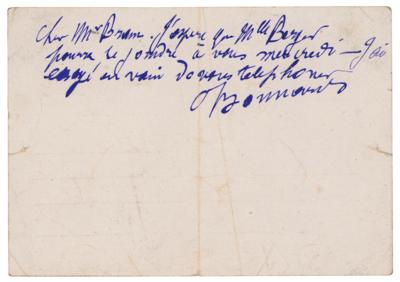 Cher Mr Braun. J'espère que Mlle Beyer
pourra se joindre à vous mercredi — J'ai
essayé en vain de vous telephoner
PBonnard